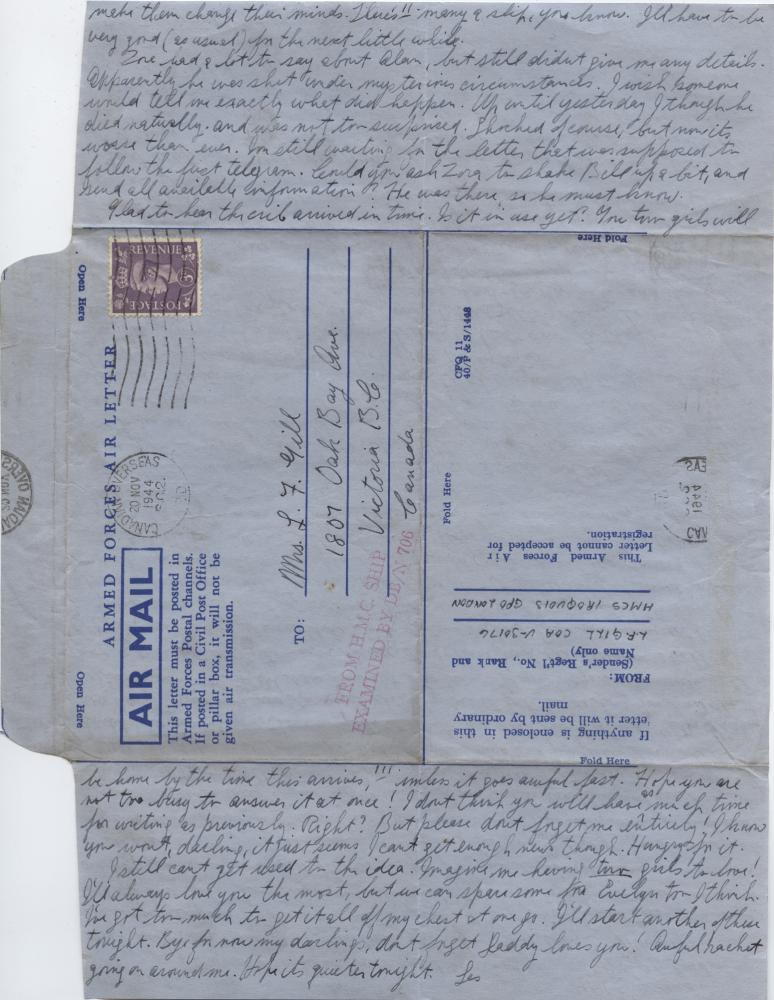 make them change their minds. There's!! many a slip, you know. I'll have to be
very good (as usual) for the next little while.
Zoe had a lot to say about Alan, but still didnt give me any details.
Apparently he was shot under mysterious circumstances. I wish someone
would tell me exactly what did happen. Up until yesterday I though he
died naturally and was not too surprised. Shocked of course, but now its
worse than ever. Im still waiting for the letter that was supposed to
follow the first telegram. Could you ask Zora to shake Bill up a bit, and
send all available information? He was there, so he must know.
Glad to hear the crib arrived in time. Is it in use yet? You two girls will
Open Here
REVENUE
POSTAGE
ARMED FORCES AIR LETTER
CANADIAN OVERSEAS
20 NOV
1944
AIR MAIL
This letter must be posted in
Armed Forces Postal channels.
If posted in a Civil Post Office
or pillar box, it will not be
given air transmission.
Open Here
TO:
Mrs. L. F. Gill
1807 Oak Bay Ave.
Victoria B.C.
Canada
FROM H.M.C. SHIP
EXAMINED BY DE/N 706
Fold Here
CFO 11
40/P & S/1448
Fold Here
This Armed Forces Air
Letter cannot be accepted for
registration.
HMCS IROQUOIS GPO LONDON
L.F. GILL CDA V-30176
(Sender's Regt'l No., Rank and
Name only)
FROM:
If anything is enclosed in this
letter it will be sent by ordinary
mail.
Fold Here
be home by the time this arrives,!!! unless it goes awful fast. Hope you are
not too busy to answer it at once! I dont think you will have as much time
for writing as previously. Right? But please dont forget me entirely! I know
you wont, darling, it just seems I cant get enough news though. Hungry for it.
I still can't get used to the idea. Imagine me having two girls to love!
I'll always love you the most, but we can spare some for Evelyn too I think.
I've got too much to get it all off my chest at one go. I'll start another of these
tonight. Bye for now my darlings, dont forget Daddy loves you! Awful racket
going on around me. Hope its quieter tonight. Les